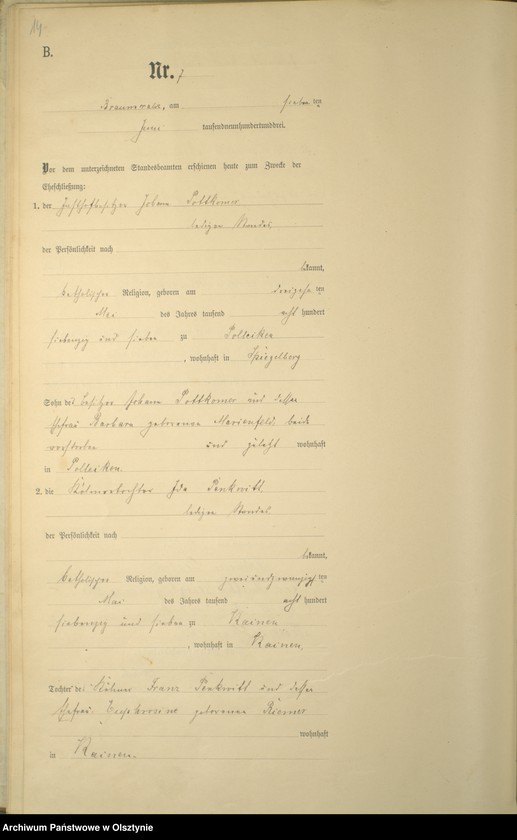 14
B.
Nr. 7
Braunswalde, am sieben ten
Juni tausendneunhundertunddrei.
Vor dem unterzeichneten Standesbeamten erschienen heute zum Zwecke der
Eheschließung:
1. der Johann Pottkomer
ledigen Standes
der Persönlichkeit nach
bekannt,
katholischer Religion, geboren am dreizehn ten
Mai des Jahres tausend acht hundert
siebenzig und sieben zu Polleiken
, wohnhaft in Spiegelberg
Sohn des Besitzer Johann Pottkomer und dessen
Ehefrau Barbara geborenen Marienfeld beide
verstorben und zuletzt wohnhaft
in Polleiken.
2. die Kölmertochter Ida Penkwitt
ledigen Standes
der Persönlichkeit nach
bekannt,
katholischer Religion, geboren am zweiundzwanzigs ten
Mai des Jahres tausend acht hundert
siebenzig und sieben zu Kainen
, wohnhaft in Kainen,
Tochter des Kölmer Franz Penkwitt und dessen
Ehefrau Euphrosine geborenen
wohnhaft
in Kainen.
Archiwum Państwowe w Olsztynie